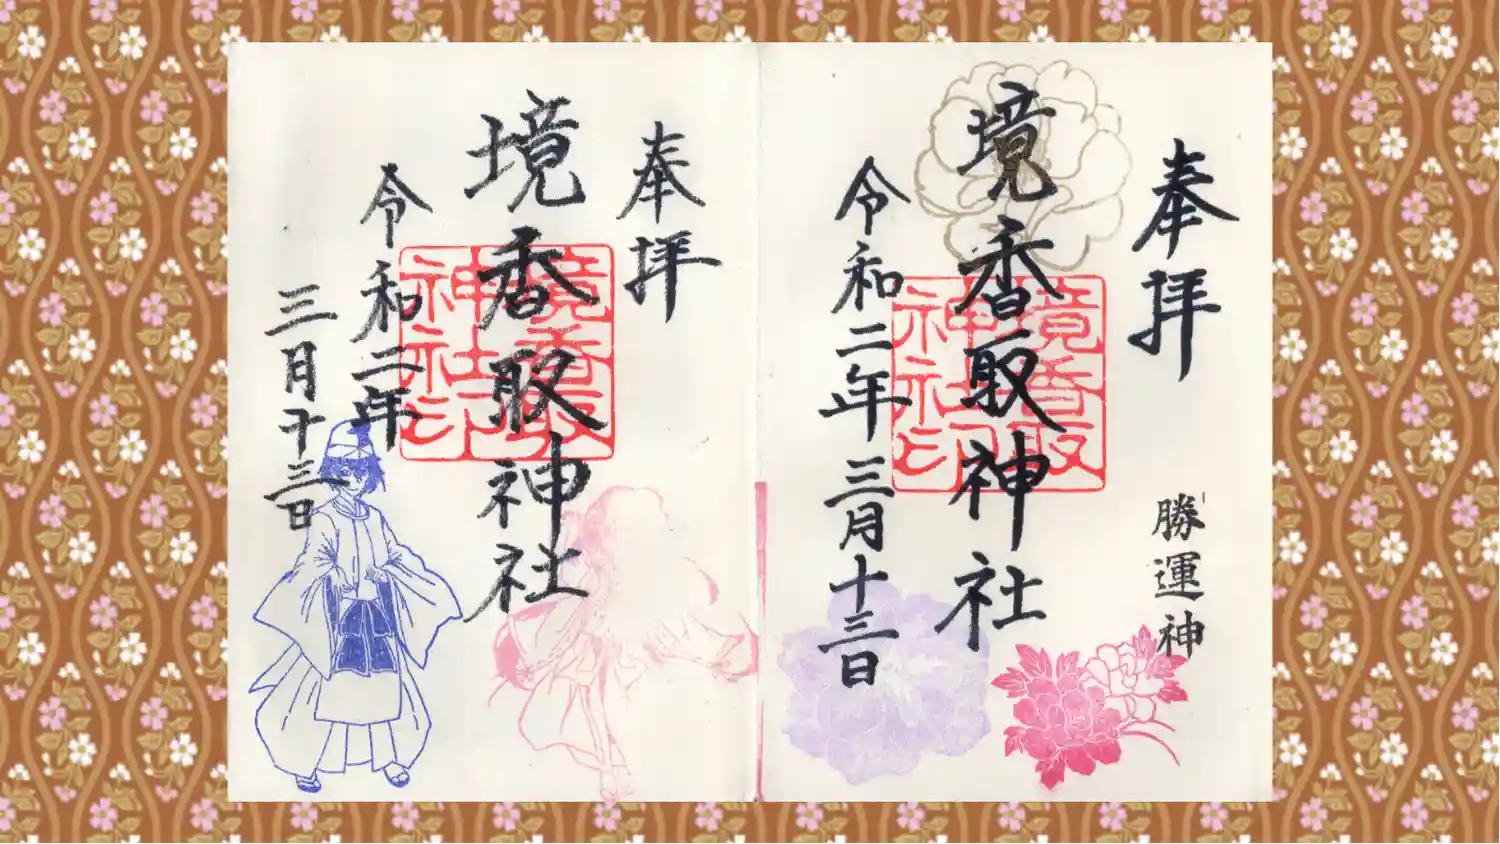 奉拝
勝運神
境香取神社
境香取神社印
令和二年三月十三日
奉拝
境香取神社
境香取神社印
令和二年
三月十三日